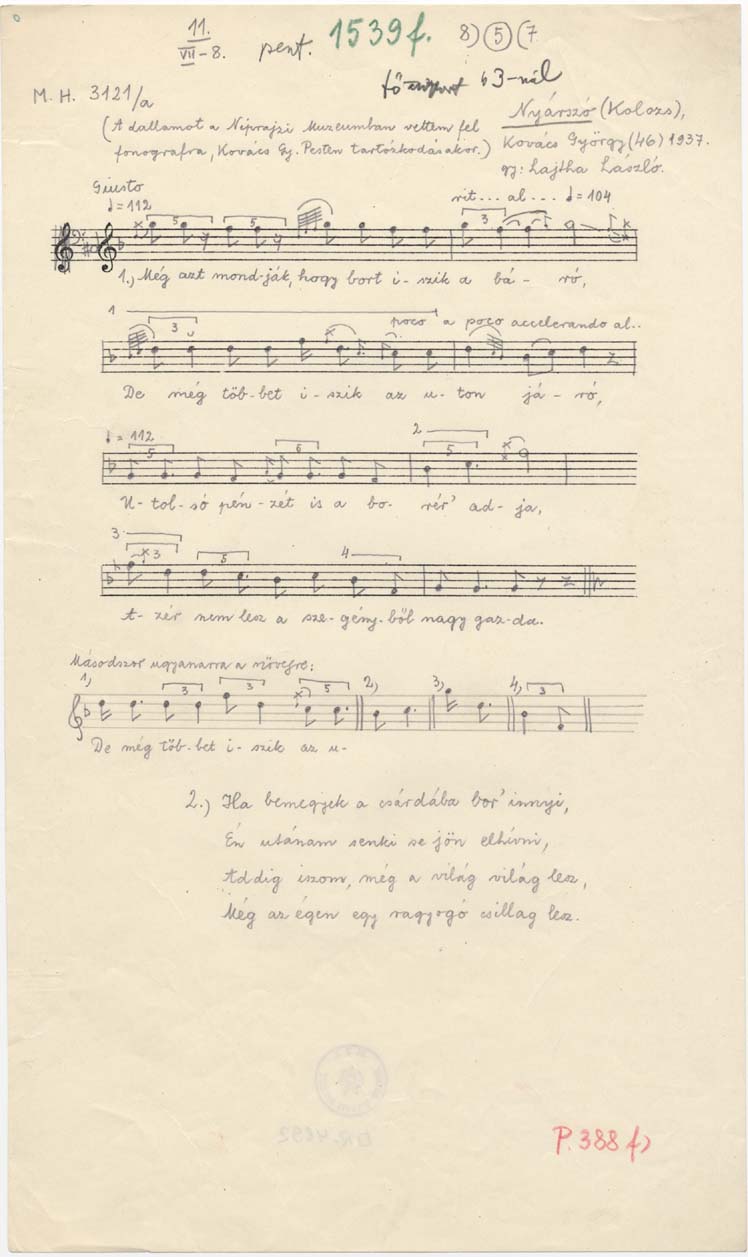 11.
VII-8. pent. 1539f. 8) 5 (7
M. H. 3121/a
63-nál
Nyárszó (Kolozs),
(A dallamot a Néprajzi Muzeumban vettem fel
Kovács György (46) 1937.
fonografra, Kovács Gy. Pesten tartózkodásakor.)
gy: Lajtha László.
Giusto
♩= 112
rit... al... ♩= 104
5 5 3
1.) Még azt mond-ják, hogy bort i-szik a bá- ró,
1
3
poco a poco accelerando al..
De még töb-bet i-szik az u-ton já-ró,
♩ = 112
2
5 6 5
U-tol-só pén-zét is a bo-rér' ad-ja,
3
3 5 4
A-zér nem lesz a sze-gény-ből nagy gaz-da.
Másodszor ugyanarra a szövegre:
1) 3 3 5 2) 3) 4) 3
De még töb-bet i-szik az u-
2.) Ha bemegyek a csárdába bor' innyi,
Én utánam senki se jön elhívni,
Addig iszom, még a világ világ lesz,
Még az égen egy ragyogó csillag lesz.
P. 388 f)